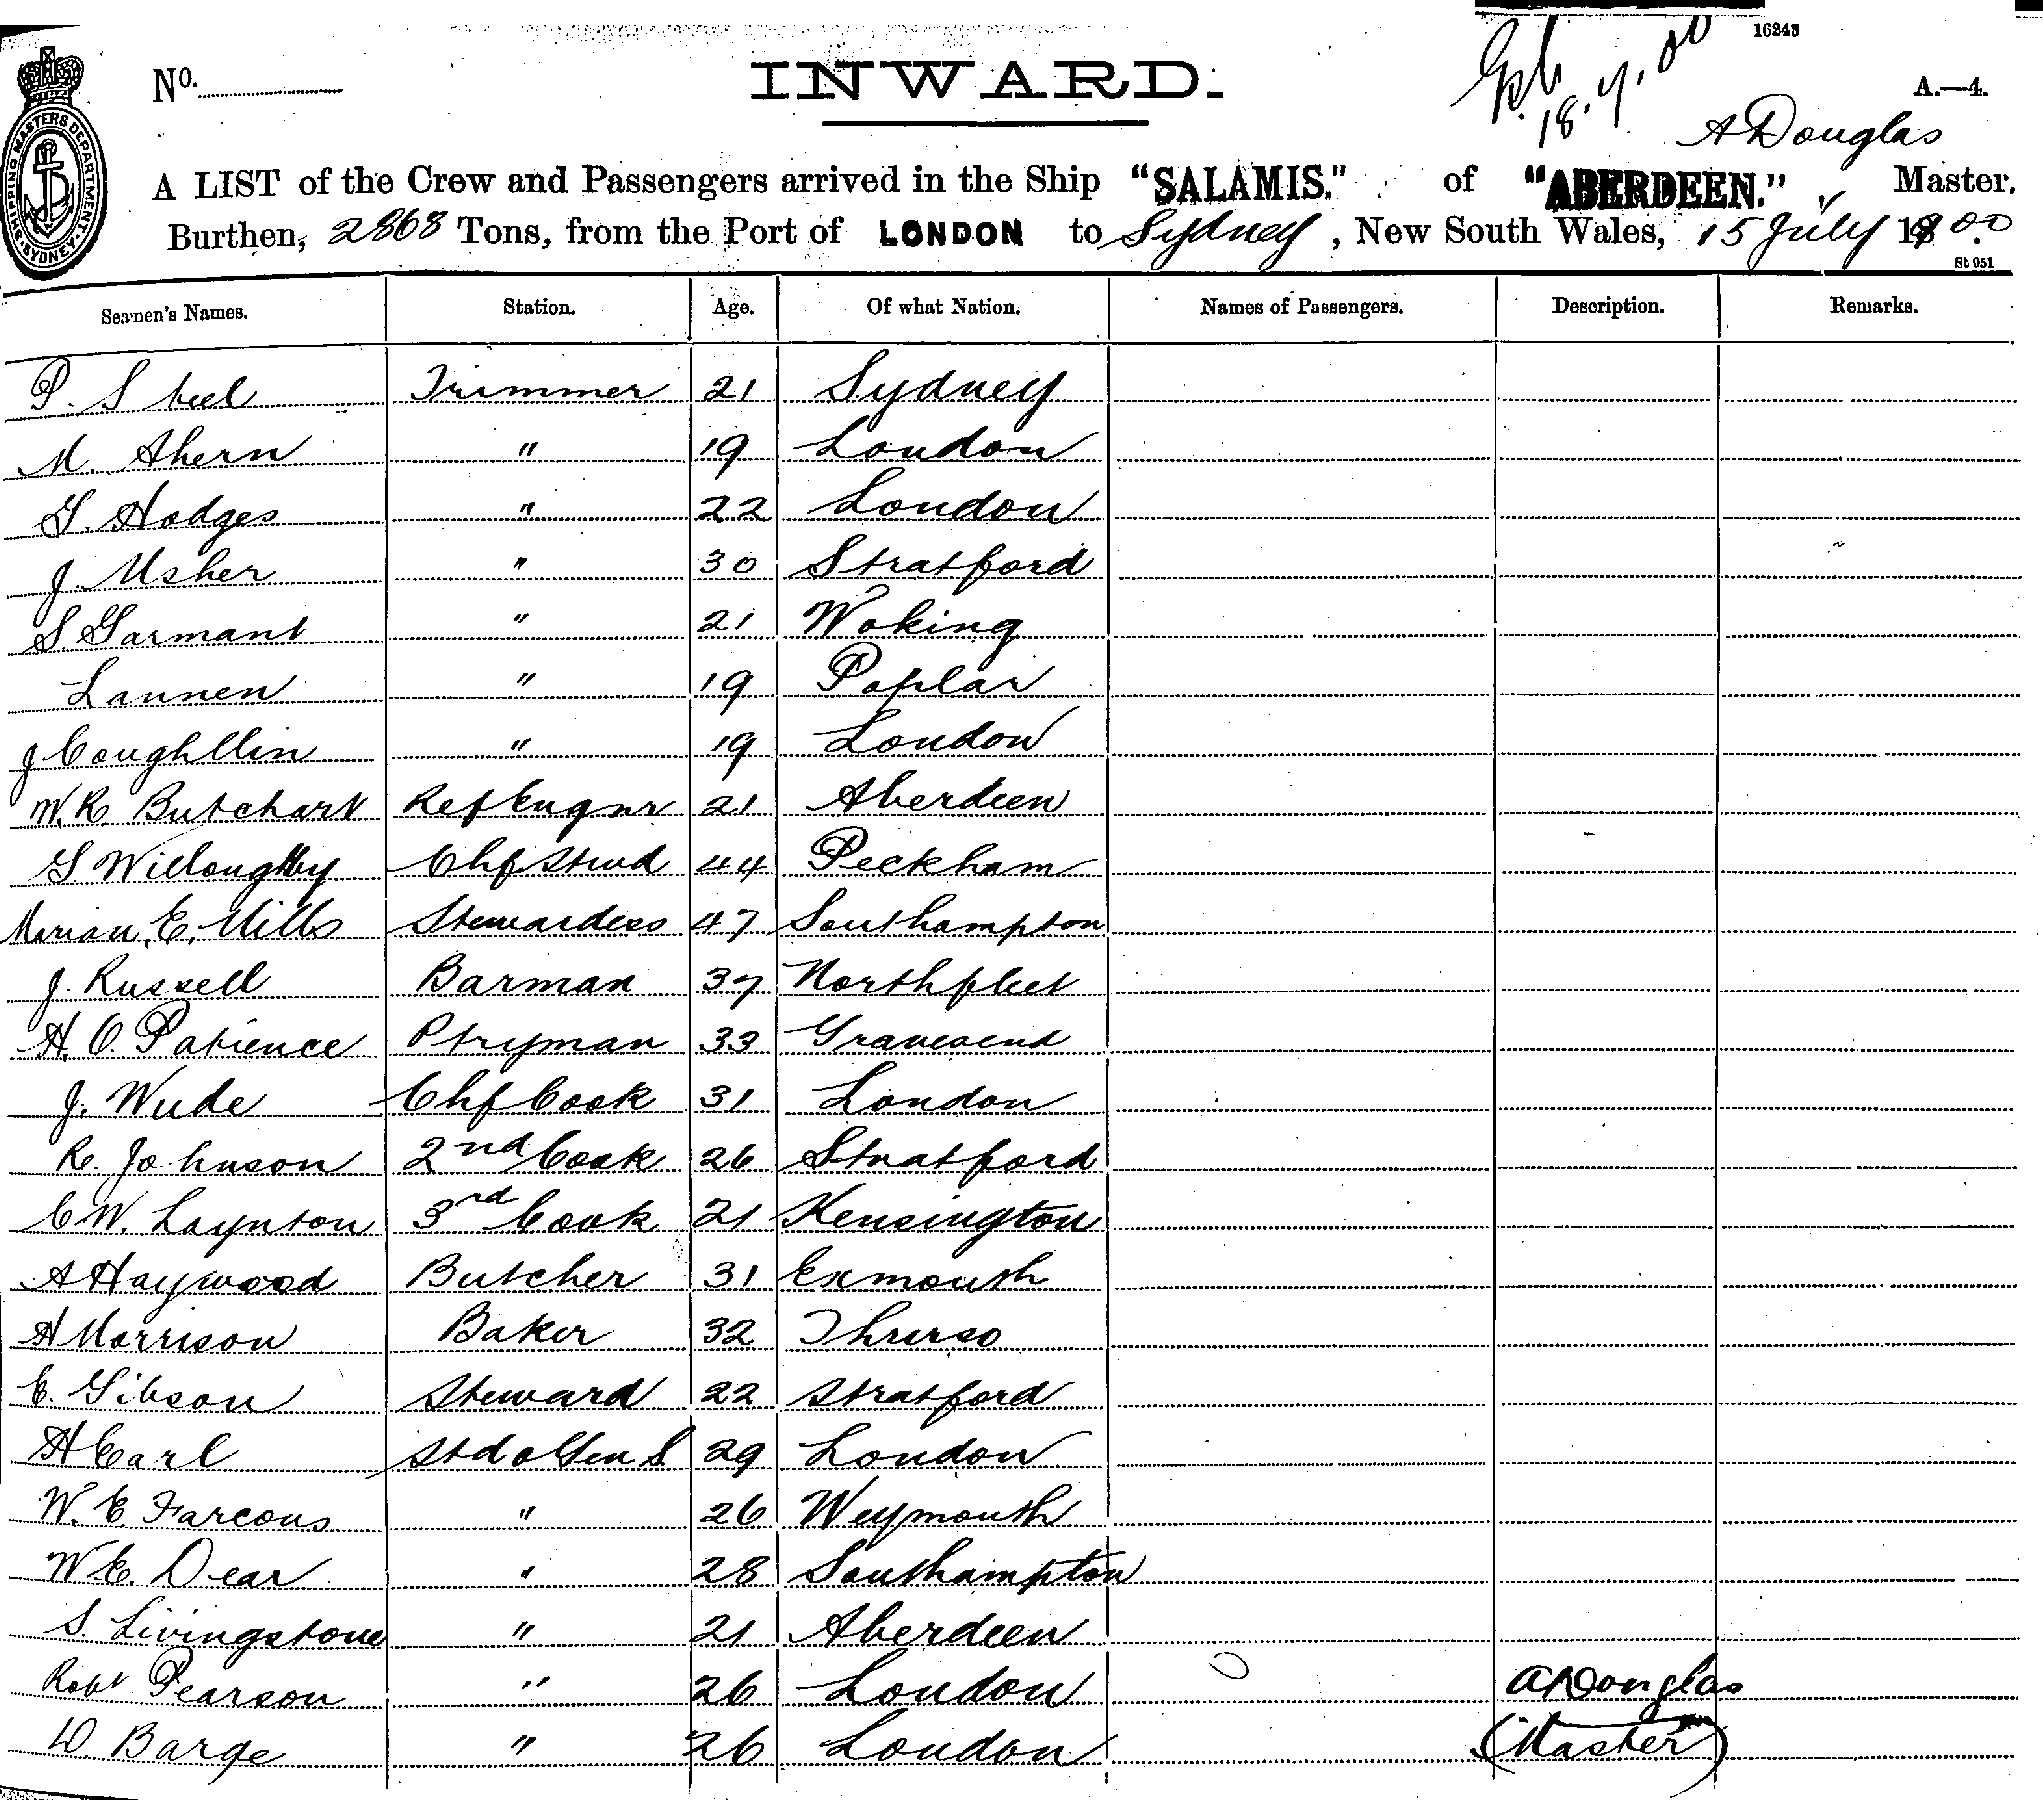 16243
No.
INWARD.
18.7.00
A.—4.
A Douglas
A LIST of the Crew and Passengers arrived in the Ship "SALAMIS." of "ABERDEEN.", Master,
Burthen, 2868 Tons, from the Port of LONDON to Sydney, New South Wales, 15 July 1900.
SHIPPING MASTERS DEPARTMENT SYDNEY
St 951
Seamen's Names. Station. Age. Of what Nation. Names of Passengers. Description. Remarks.
P. Steel Trimmer 21 Sydney
M. Ahern " 19 London
G. Hodges " 22 London
J. Usher " 30 Stratford
S. Garmant " 21 Woking
Lannen " 19 Poplar
J Coughllin " 19 London
W.R. Butchart Ref Engnr 21 Aberdeen
G Willoughby Chf Stwd 44 Peckham
Marian E. Mills Stewardess 47 Southampton
J. Russell Barman 37 Northfleet
H. O. Patience Ptryman 33 Gravesend
J. Wude Chf Cook 31 London
R. Johnson 2nd Cook 26 Stratford
C W. Laynton 3rd Cook 21 Kensington
A Haywood Butcher 31 Exmouth
A Morrison Baker 32 Thurso
E. Gibson Steward 22 Stratford
H Carl Std o Gen S 29 London
W. E. Farcous " 26 Weymouth
W E. Dear " 28 Southampton
S. Livingstone " 21 Aberdeen
Robt Pearson " 26 London A Douglas
W Barge " 26 London (Master)